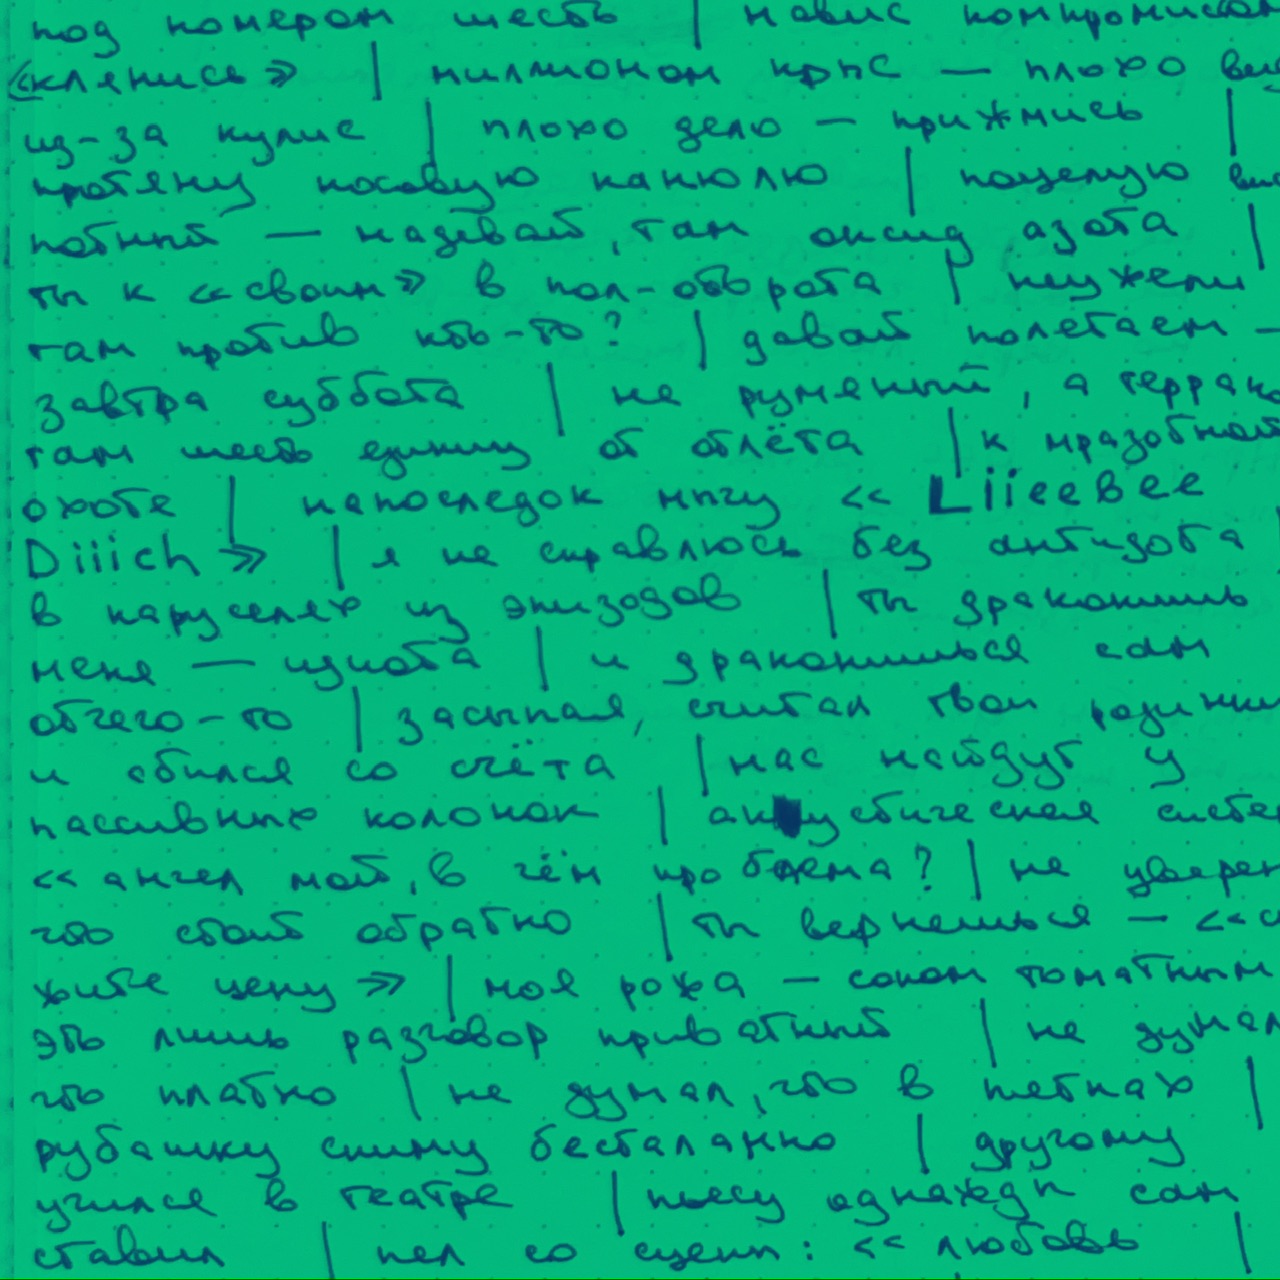 под номером шесть | навис компромиссом
«клянись» | миллионом крыс — плохо
из-за кулис | плохо дело — прижмись |
протяну носовую канюлю | поцелую
потный — надевай, там оксид азота |
ты к «своим» в пол-оборота | неужели
там против кто-то? | давай полетаем —
завтра суббота | не румяный, а
там шесть единиц от отлёта | к мразотной
охоте | напоследок мычу « Liieebee
Diiich » | я не справлюсь без антидота
в каруселях из эпизодов | ты драконишь
меня — идиота | и драконишься сам
отчего-то | засыпая, считал твои родинки
и сбился со счёта | нас найдут у
пассивных колонок | акустическая
« ангел мой, в чём проблема? | не уверен
что стоит обратно | ты вернешься — «
жите цену » | моя рожа — соком томатным
это лишь разговор приватный | не думал
что платно | не думал, что в пятнах |
рубашку сниму бесталанно | другому
учился в театре | пьесу однажды сам
ставил | пел со сцены: « любовь |